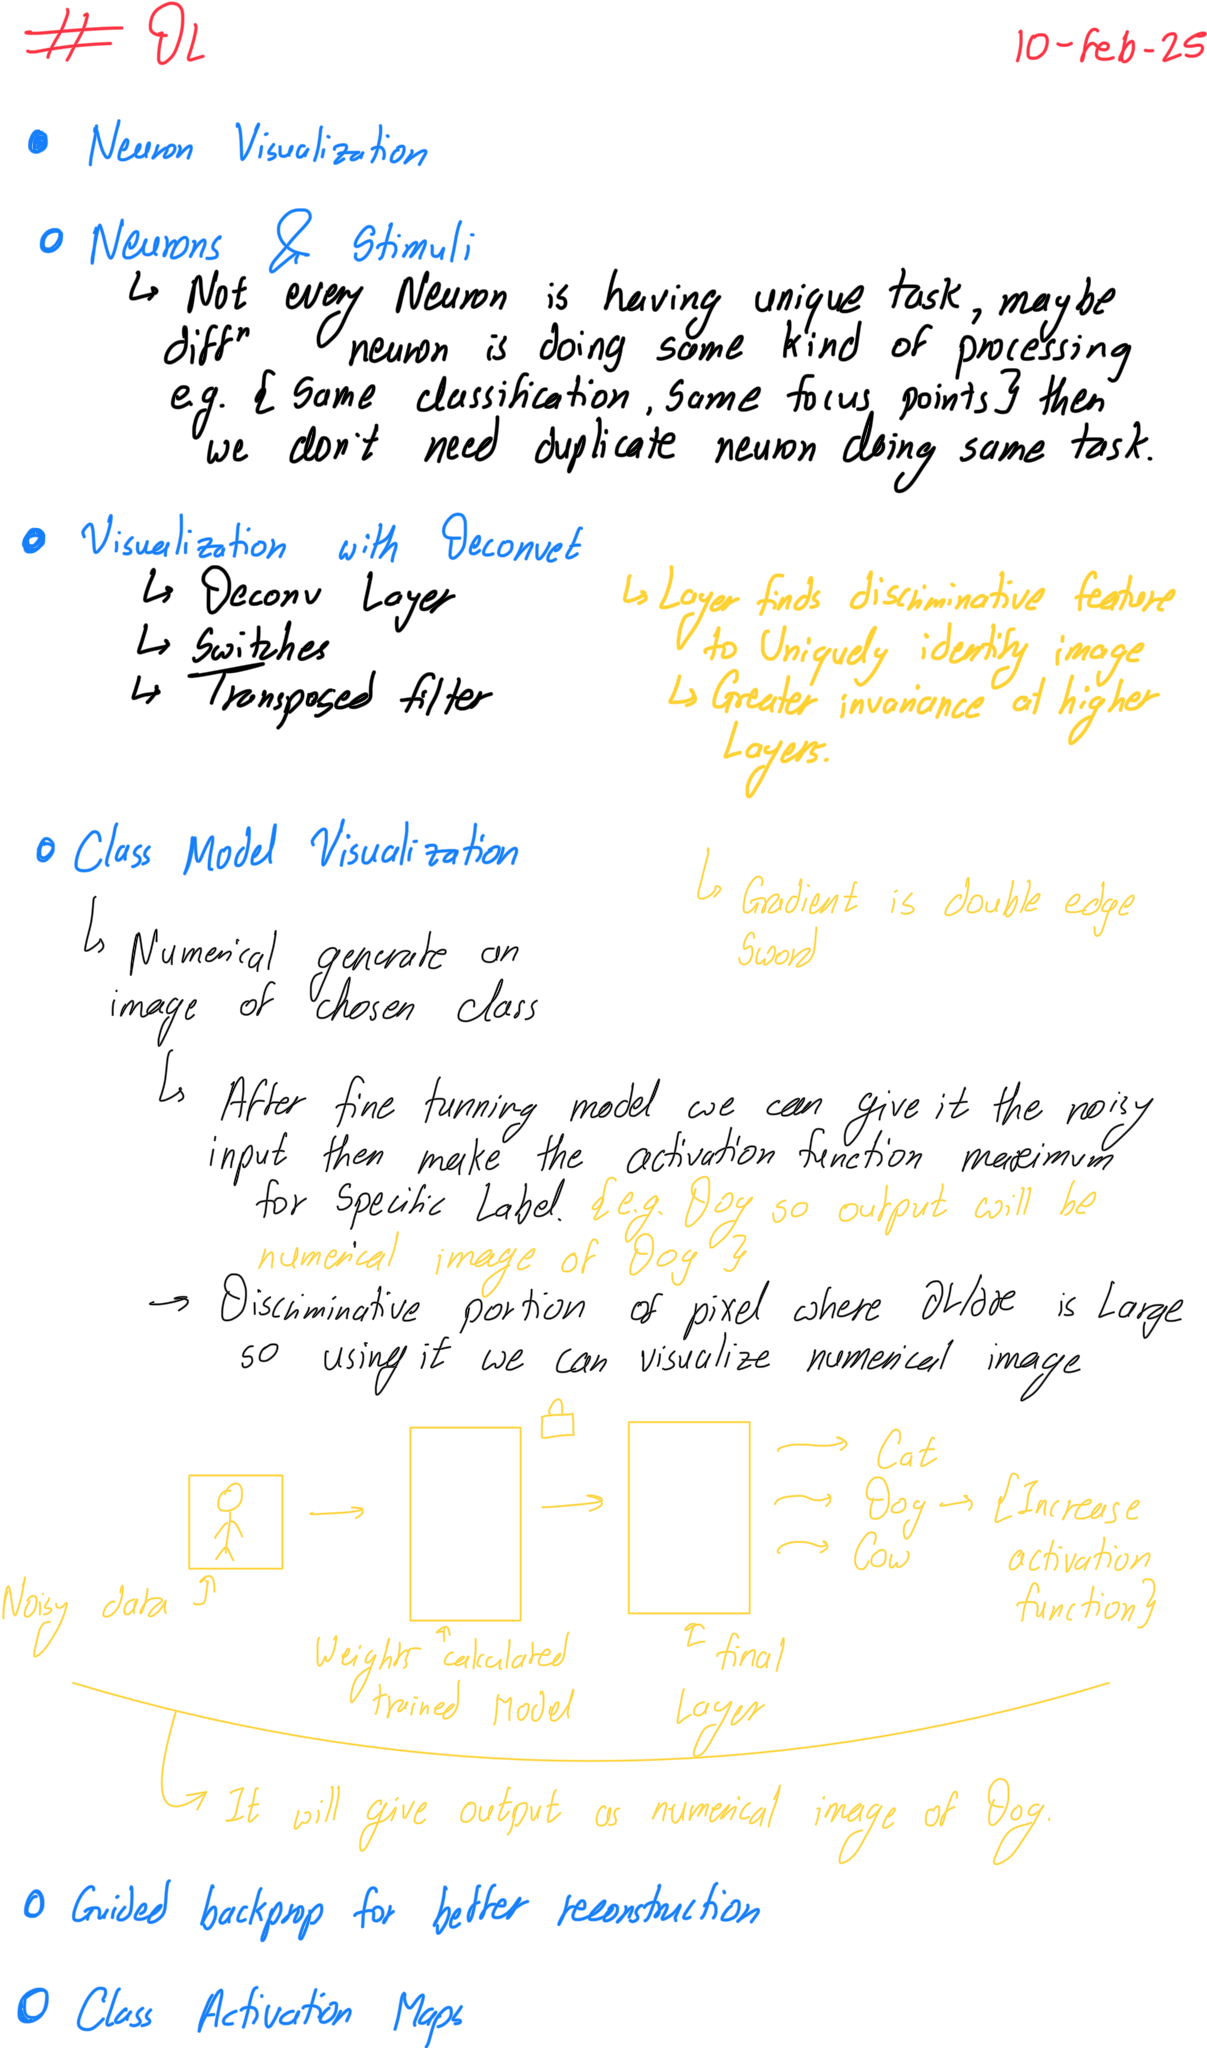 # DL
10-Feb-25
Neuron Visualization
Neurons & Stimuli
↳ Not every Neuron is having unique task, maybe
diffⁿ neuron is doing same kind of processing
e.g. { Same classification, Same focus points } then
we don't need duplicate neuron doing same task.
Visualization with Deconvet
↳ Deconv Layer
↳ Switches
↳ Transposed filter
↳ Layer finds discriminative feature
to Uniquely identify image
↳ Greater invariance at higher
Layers.
Class Model Visualization
↳ Gradient is double edge
Sword
↳ Numerical generate an
image of chosen class
↳ After fine tunning model we can give it the noisy
input then make the activation function maximum
for Specific Label. {e.g. Dog so output will be
numerical image of Dog }
→ Discriminative portion of pixel where ∂L/∂x is Large
so using it we can visualize numerical image
Cat
Dog → {Increase
activation
function}
Cow
Noisy data
Weights calculated
trained Model
final
Layer
→ It will give output as numerical image of Dog.
Guided backprop for better reconstruction
Class Activation Maps